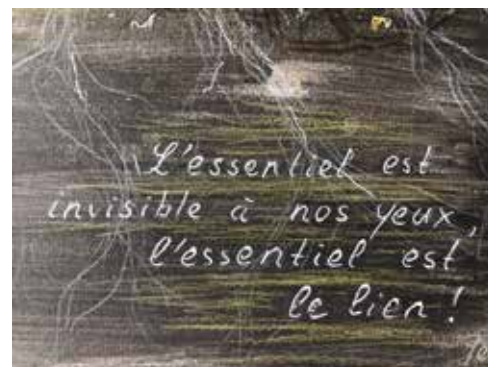 L'essentiel est
invisible à nos yeux,
l'essentiel est
le lien !